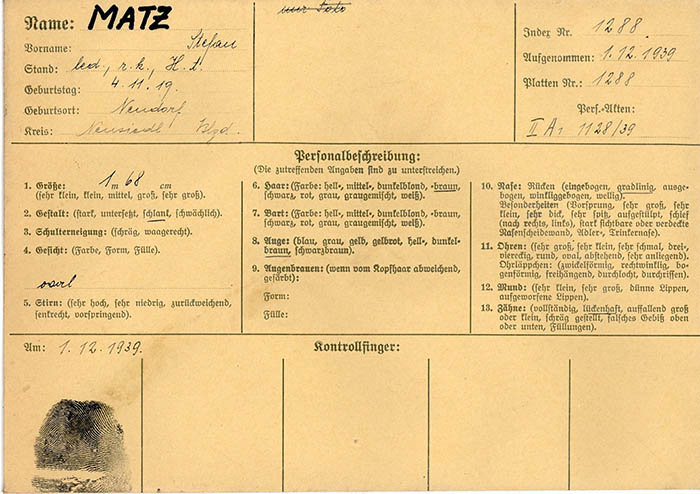 Name: MATZ
Vorname: Stefan
Stand: led., r. k., H. t.
Geburtstag: 4. 11. 19.
Geburtsort: Neudorf
Kreis: Neusiedl Bzgd.
nur Foto
Index Nr. 1288
Aufgenommen: 1. 12. 1939
Platten Nr.: 1288
Pers.-Akten:
II A1 1128/39
Personalbeschreibung:
(Die zutreffenden Angaben sind zu unterstreichen.)
1. Größe: 1 m 68 cm
(sehr klein, klein, mittel, groß, sehr groß).
2. Gestalt: (stark, untersetzt, schlank, schwächlich).
3. Schulterneigung: (schräg, waagerecht).
4. Gesicht: (Farbe, Form, Fülle).
oval
5. Stirn: (sehr hoch, sehr niedrig, zurückweichend,
senkrecht, vorspringend).
6. Haar: (Farbe: hell-, mittel-, dunkelblond, -braun,
schwarz, rot, grau, graugemischt, weiß).
7. Bart: (Farbe: hell-, mittel-, dunkelblond, -braun,
schwarz, rot, grau, graugemischt, weiß).
8. Auge: (blau, grau, gelb, gelbrot, hell-, dunkel-
braun, schwarzbraun).
9. Augenbrauen: (wenn vom Kopfhaar abweichend,
gefärbt):
Form:
Fülle:
10. Nase: Rücken (eingebogen, gradlinig, ausge-
bogen, winkliggebogen, wellig).
Besonderheiten (Vorsprung, sehr groß, sehr
klein, sehr dick, sehr spitz, aufgestülpt, schief
(nach rechts, links), stark sichtbare oder verdeckte
Nasenscheidewand, Adler-, Trinkernase).
11. Ohren: (sehr groß, sehr klein, sehr schmal, drei-,
viereckig, rund, oval, abstehend, sehr anliegend).
Ohrläppchen: (zwickelförmig, rechtwinklig, bo-
genförmig, freihängend, durchlocht, durchrissen).
12. Mund: (sehr klein, sehr groß, dünne Lippen,
aufgeworfene Lippen).
13. Zähne: (vollständig, lückenhaft, auffallend groß
oder klein, schräg gestellt, falsches Gebiß oben
oder unten, Füllungen).
Am: 1. 12. 1939.
Kontrollfinger: